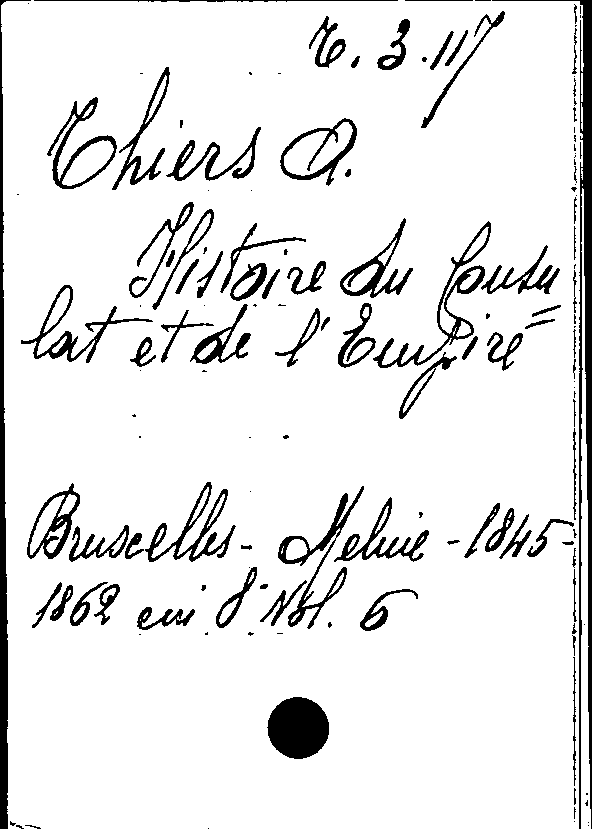 T. 3.117
Thiers A.
Histoire du Consu=
lat et de l'Empire
Bruxelles - Meline - 1845-
1862 in 8° Vol. 5